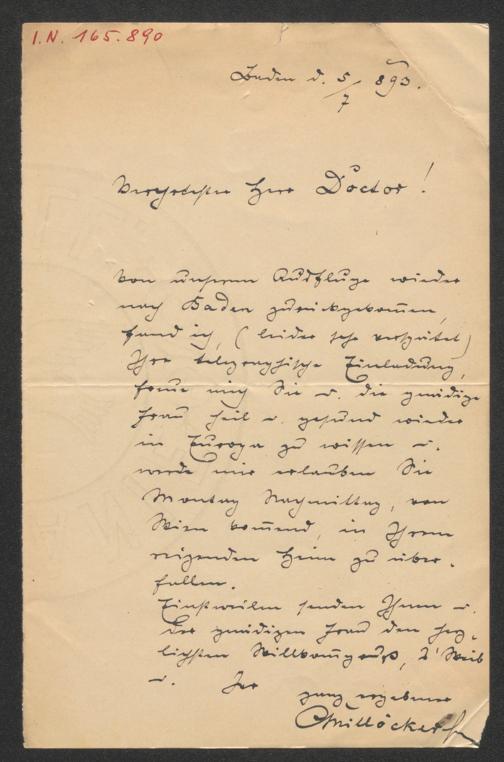 I.N. 165.890
Baden d. 5/7 893.
Verehrtester Herr Doctor!
Von unserem Ausfluge wieder
nach Baden zurückgekommen,
fand ich, (leider sehr verspätet)
Ihre telegraphische Einladung,
freue mich Sie u. die gnädige
Frau heil u. gesund wieder
in Europa zu wissen u.
werde mir erlauben Sie
Montag Nachmittag, von
Wien kommend, in Ihrem
reizenden Heim zu über-
fallen.
Einstweilen senden Ihnen u.
der gnädigen Frau den herz-
lichsten Willkommgruß, 's Weib
u. Ihr
ganz ergebener
CMillöcker